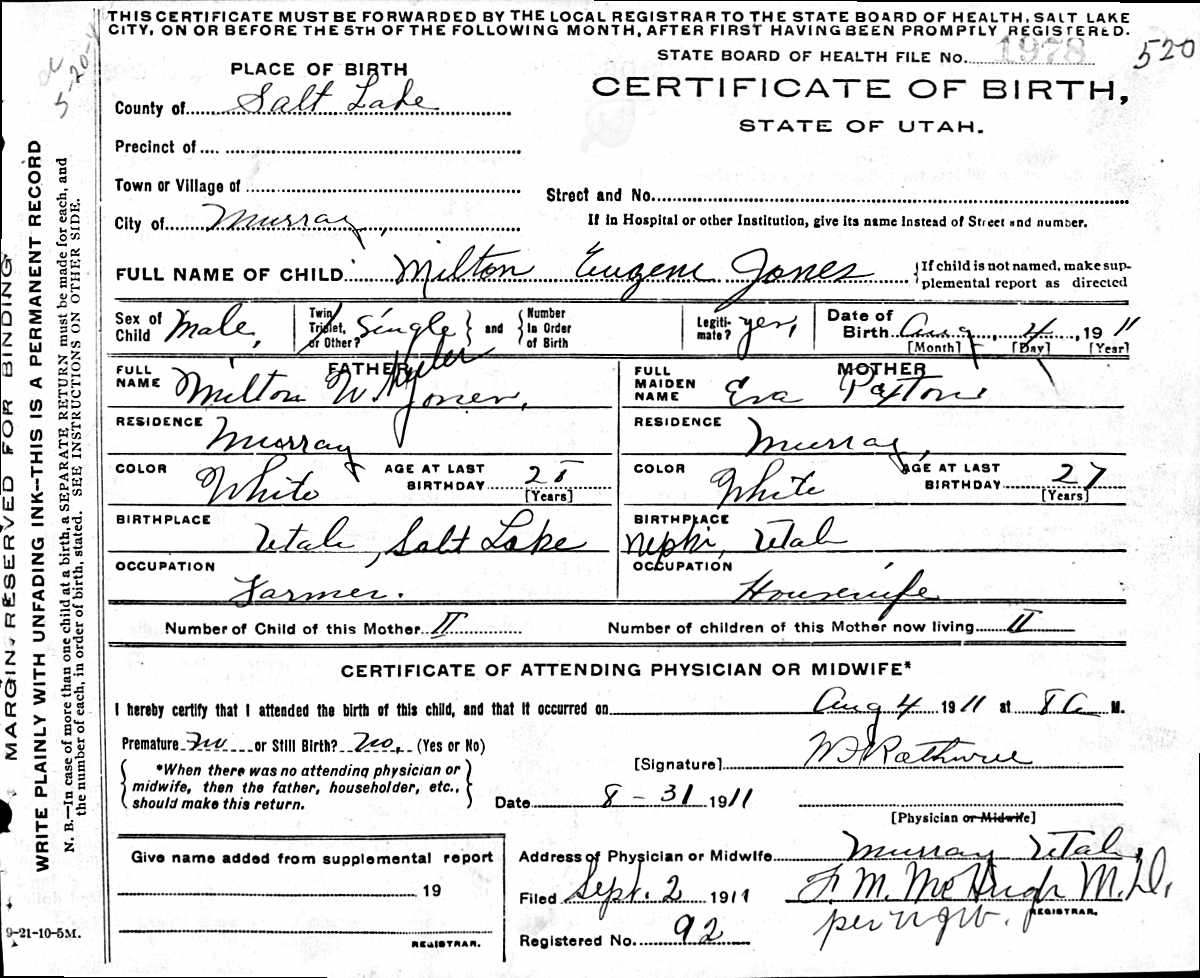 THIS CERTIFICATE MUST BE FORWARDED BY THE LOCAL REGISTRAR TO THE STATE BOARD OF HEALTH, SALT LAKE
CITY, ON OR BEFORE THE 5TH OF THE FOLLOWING MONTH, AFTER FIRST HAVING BEEN PROMPTLY REGISTERED.
STATE BOARD OF HEALTH FILE No. 1978 520
5-20-
PLACE OF BIRTH
CERTIFICATE OF BIRTH,
STATE OF UTAH.
County of Salt Lake
Precinct of
Town or Village of
Street and No.
City of Murray,
If in Hospital or other Institution, give its name Instead of Street and number.
FULL NAME OF CHILD Milton Eugene Jones
If child is not named, make sup-
plemental report as directed
Sex of Child Male,
Twin, Triplet, or Other? Single and Number in Order of Birth
Legiti-mate? yes,
Date of Birth Aug, 4, 1911
[Month] [Day] [Year]
FATHER
FULL NAME Milton W. Jones,
RESIDENCE Murray
COLOR White AGE AT LAST BIRTHDAY
[Years]
BIRTHPLACE Utah, Salt Lake
OCCUPATION Farmer.
MOTHER
FULL MAIDEN NAME Eva Paxton
RESIDENCE Murray,
COLOR White AGE AT LAST BIRTHDAY 27
[Years]
BIRTHPLACE Nephi, Utah
OCCUPATION Housewife
Number of Child of this Mother II Number of children of this Mother now living II
CERTIFICATE OF ATTENDING PHYSICIAN OR MIDWIFE*
I hereby certify that I attended the birth of this child, and that it occurred on Aug 4 1911 at 8 a M.
Premature No or Still Birth? No, (Yes or No)
[Signature]
*When there was no attending physician or
midwife, then the father, householder, etc.,
should make this return.
Date 8-31 1911
[Physician or Midwife]
Give name added from supplemental report
19
REGISTRAR.
Address of Physician or Midwife Murray Utah,
Filed Sept. 2 1911 F. M. McHugh M.D.
REGISTRAR.
per
Registered No. 92
MARGIN RESERVED FOR BINDING
WRITE PLAINLY WITH UNFADING INK—THIS IS A PERMANENT RECORD
N. B.—In case of more than one child at a birth, a SEPARATE RETURN must be made for each, and
the number of each, in order of birth, stated. SEE INSTRUCTIONS ON OTHER SIDE.
9-21-10-5M.